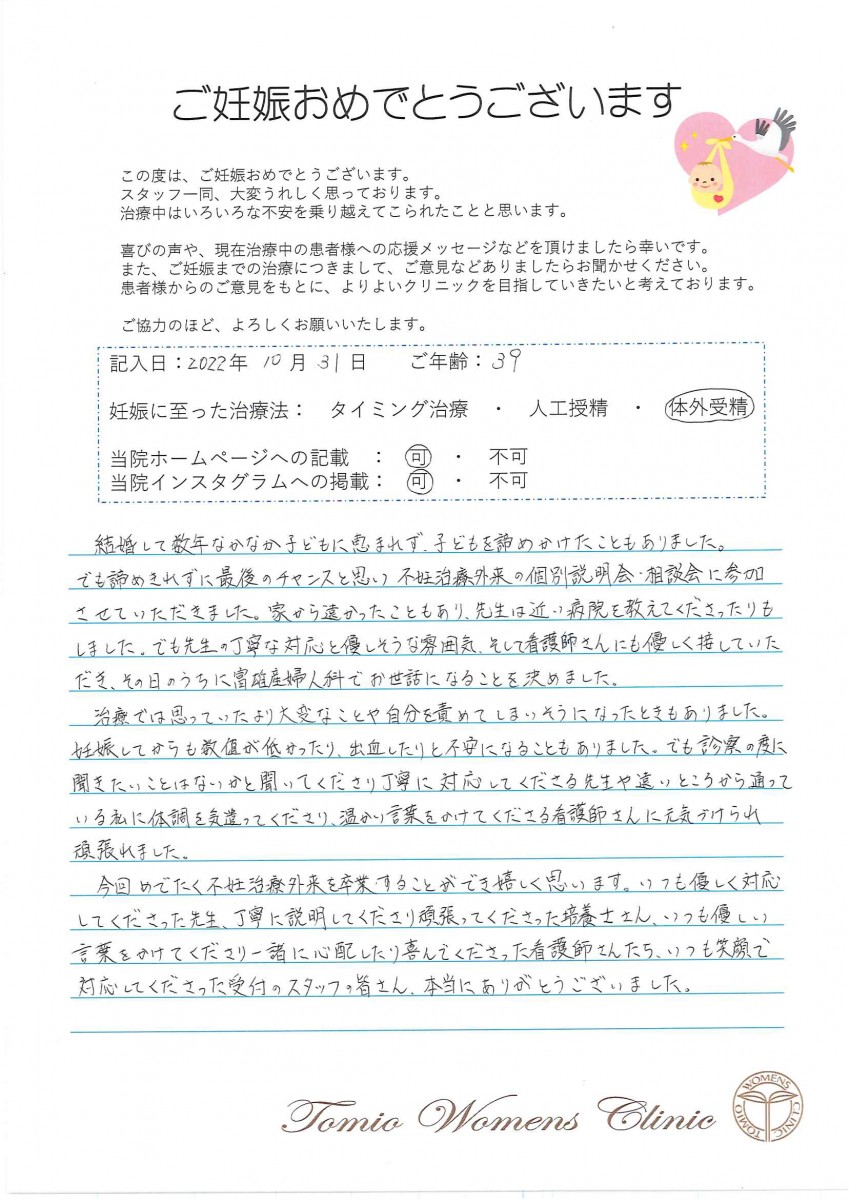 ご妊娠おめでとうございます
この度は、ご妊娠おめでとうございます。
スタッフ一同、大変うれしく思っております。
治療中はいろいろな不安を乗り越えてこられたことと思います。
喜びの声や、現在治療中の患者様への応援メッセージなどを頂けましたら幸いです。
また、ご妊娠までの治療につきまして、ご意見などありましたらお聞かせください。
患者様からのご意見をもとに、よりよいクリニックを目指していきたいと考えております。
ご協力のほど、よろしくお願いいたします。
記入日：2022年 10月 31日 ご年齢：39
妊娠に至った治療法： タイミング治療 ・ 人工授精 ・ 体外受精
当院ホームページへの記載 ： 可 ・ 不可
当院インスタグラムへの掲載： 可 ・ 不可
結婚して数年なかなか子どもに恵まれず、子どもを諦めかけたこともありました。
でも諦めきれずに最後のチャンスと思い 不妊治療外来の個別説明会・相談会に参加
させていただきました。家から遠かったこともあり、先生は近い病院を教えてくださったりも
しました。でも先生の丁寧な対応と優しそうな雰囲気、そして看護師さんにも優しく接していた
だき、その日のうちに富雄産婦人科でお世話になることを決めました。
治療では思っていたより大変なことや自分を責めてしまいそうになったときもありました。
妊娠してからも数値が低かったり、出血したりと不安になることもありました。でも診察の度に
聞きたいことはないかと聞いてくださり丁寧に対応してくださる先生や遠いところから通って
いる私に体調を気遣ってくださり、温かい言葉をかけてくださる看護師さんに元気づけられ
頑張れました。
今回めでたく不妊治療外来を卒業することができ嬉しく思います。いつも優しく対応
してくださった先生、丁寧に説明してくださり頑張ってくださった培養士さん、いつも優しい
言葉をかけてくださり一諸に心配したり喜んでくださった看護師さんたち、いつも笑顔で
対応してくださった受付のスタッフの皆さん、本当にありがとうございました。
Tomio Womens Clinic
TOMIO WOMENS CLINIC